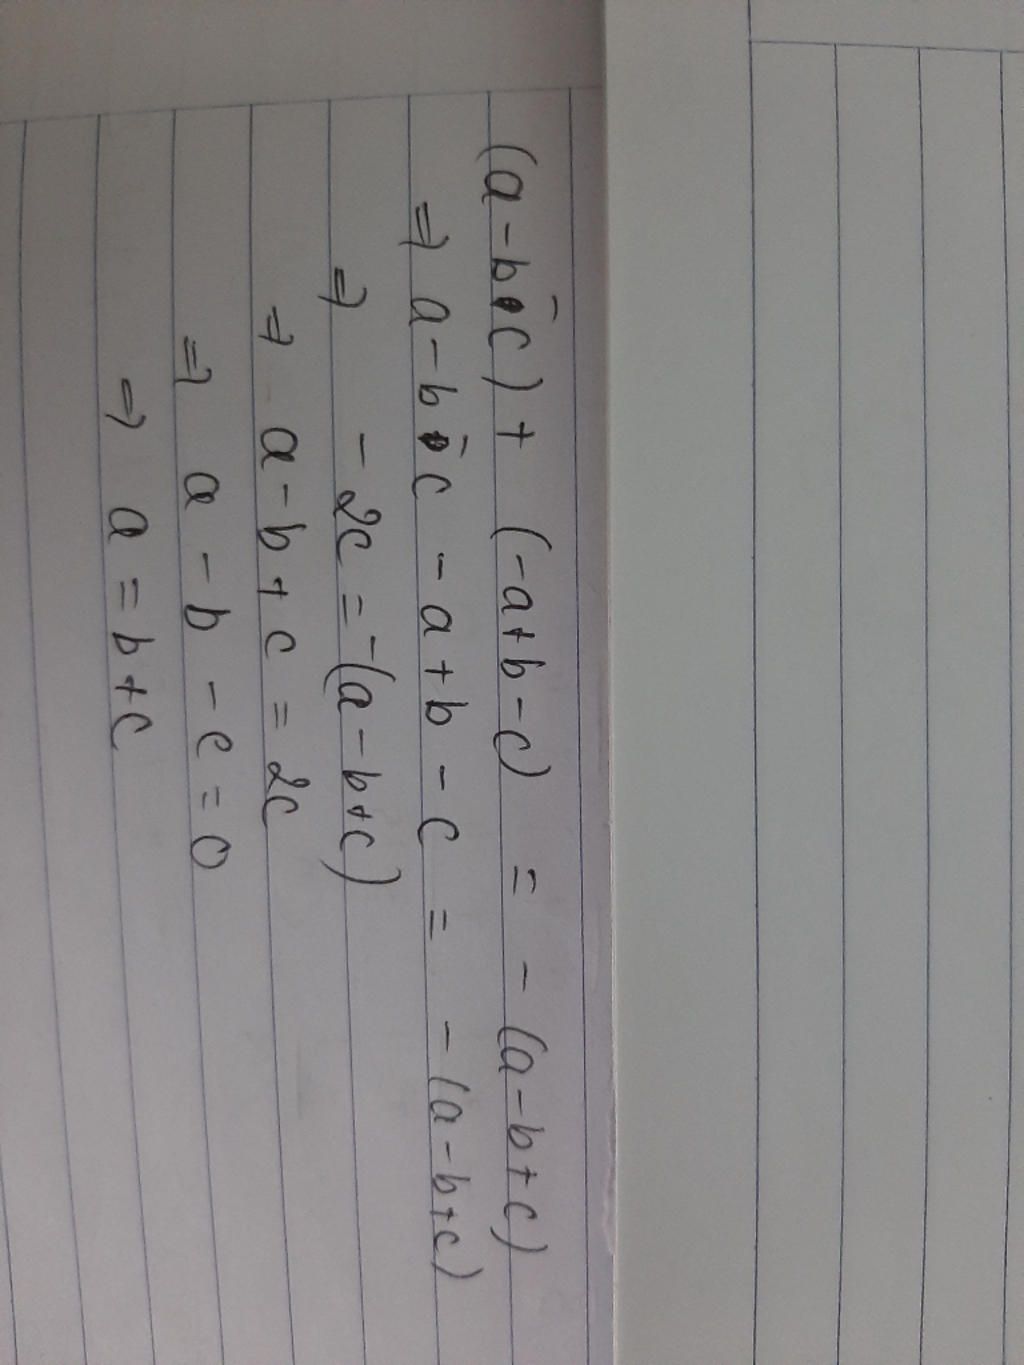 (a-b-c) + (-a+b-c) = -(a-b+c)
⇒ a-b-c -a+b-c = -(a-b+c)
⇒ -2c = -(a-b+c)
⇒ a-b+c = 2c
⇒ a-b-c=0
⇒ a=b+c